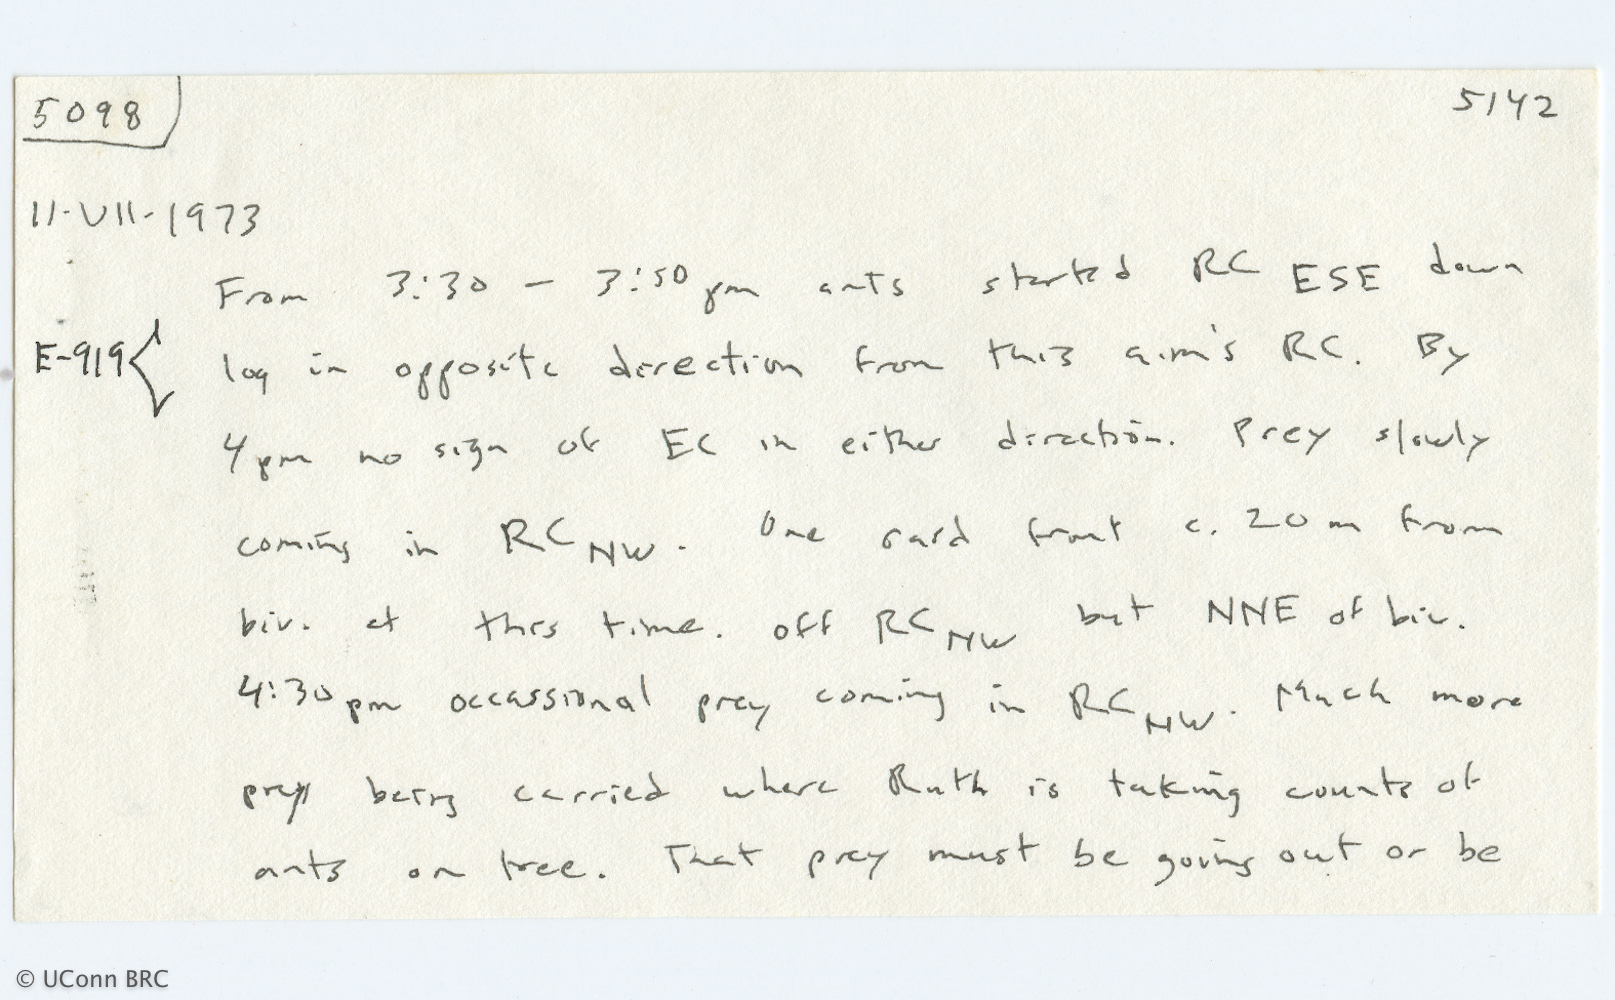 5098
5142
11-VII-1973
From 3:30 - 3:50 pm ants started RC ESE down
E-919
log in opposite direction from this a.m.'s RC. By
4pm no sign of EC in either direction. Prey slowly
coming in RC NW. One raid front c. 20 m from
biv. at this time. off RC NW but NNE of biv.
4:30 pm occassional prey coming in RC NW. Much more
prey being carried where Ruth is taking counts of
ants on tree. That prey must be going out or be
© UConn BRC